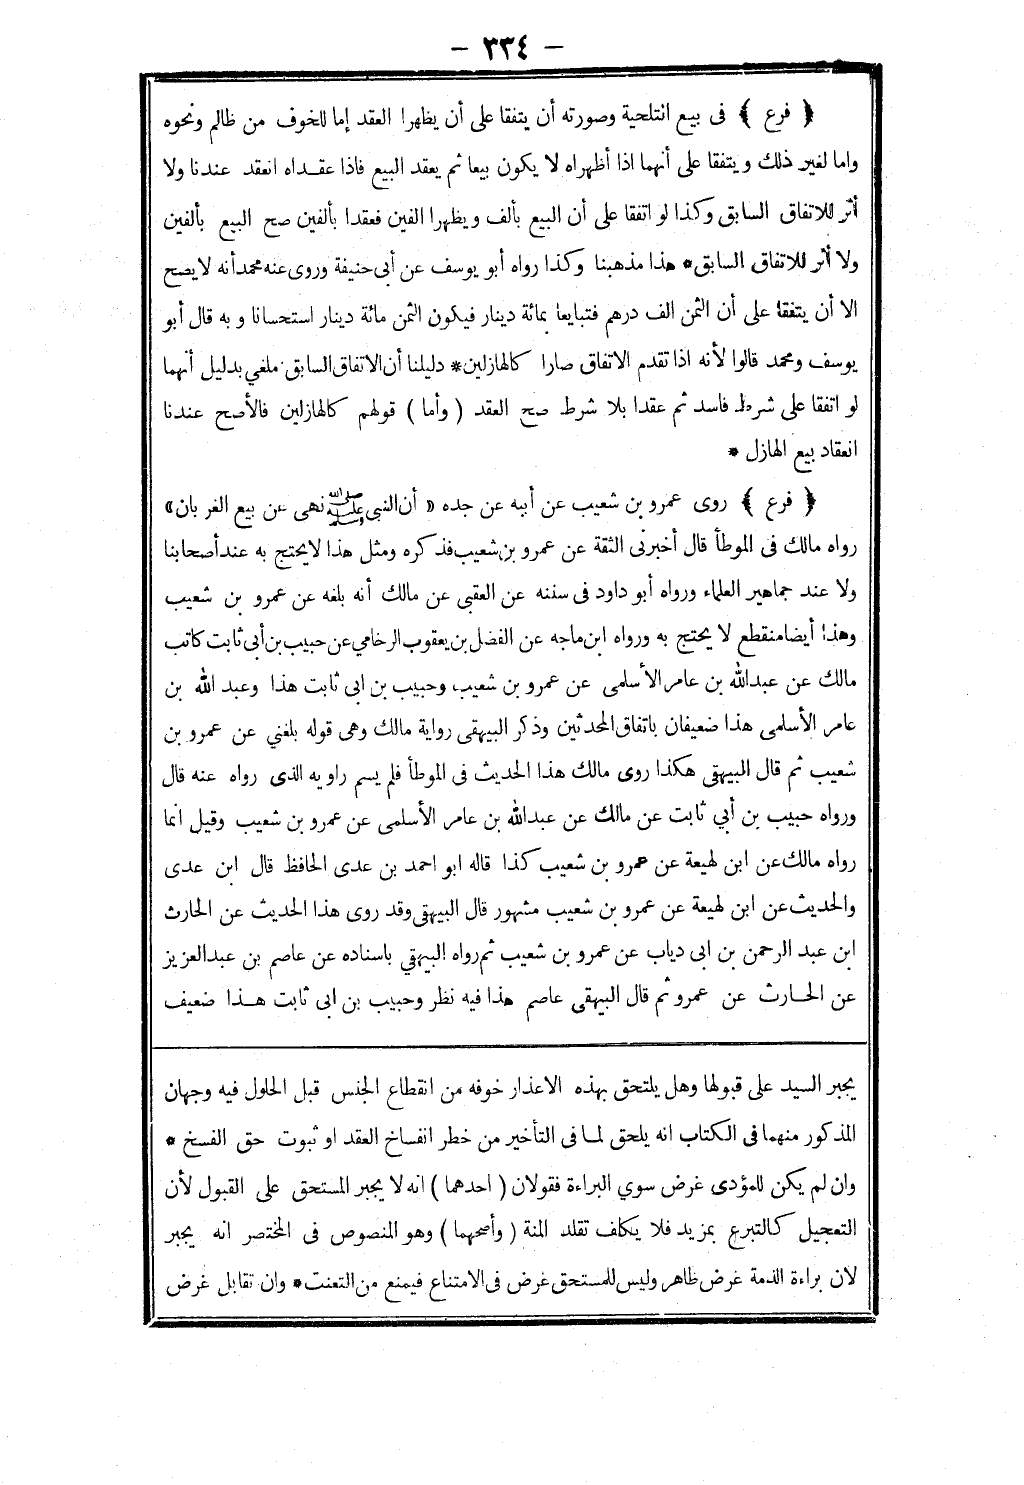 - ٣٣٤ -
﴿ فرع ﴾ فى بيع التلجئة وصورته أن يتفقا على أن يظهرا العقد إما للخوف من ظالم ونحوه
واما لغير ذلك ويتفقا على أنهما اذا أظهراه لا يكون بيعا ثم يعقد البيع فاذا عقداه انعقد عندنا ولا
أثر للاتفاق السابق وكذا لو اتفقا على أن البيع بألف ويظهرا الفين فعقدا بألفين صح البيع بألفين
ولا أثر للاتفاق السابق * هذا مذهبنا وكذا رواه أبو يوسف عن أبى حنيفة وروى عنه محمد أنه لا يصح
الا أن يتفقا على أن الثمن الف درهم فتبايعا بمائة دينار فيكون الثمن مائة دينار استحسانا وبه قال أبو
يوسف ومحمد قالوا لأنه اذا تقدم الاتفاق صارا كالهازلين * دليلنا أن الاتفاق السابق ملغي بدليل أنهما
لو اتفقا على شرط فاسد ثم عقدا بلا شرط صح العقد ( وأما ) قولهم كالهازلين فالأصح عندنا
انعقاد بيع الهازل *
﴿ فرع ﴾ روى عمرو بن شعيب عن أبيه عن جده « أن النبى ﷺ نهى عن بيع العربان »
رواه مالك فى الموطأ قال أخبرنى الثقة عن عمرو بن شعيب فذكره ومثل هذا لا يحتج به عند أصحابنا
ولا عند جماهير العلماء ورواه أبو داود فى سننه عن القعنبي عن مالك أنه بلغه عن عمرو بن شعيب
وهذا أيضا منقطع لا يحتج به ورواه ابن ماجه عن الفضل بن يعقوب الرخامي عن حبيب بن أبي ثابت كاتب
مالك عن عبدالله بن عامر الأسلمى عن عمرو بن شعيب وحبيب بن ابي ثابت هذا وعبد الله بن
عامر الأسلمى هذا ضعيفان باتفاق المحدثين وذكر البيهقى رواية مالك وهى قوله بلغني عن عمرو بن
شعيب ثم قال البيهقى هكذا روى مالك هذا الحديث فى الموطأ فلم يسم راويه الذى رواه عنه قال
ورواه حبيب بن أبي ثابت عن مالك عن عبدالله بن عامر الأسلمى عن عمرو بن شعيب وقيل انما
رواه مالك عن ابن لهيعة عن عمرو بن شعيب كذا قاله ابو احمد بن عدى الحافظ قال ابن عدى
والحديث عن ابن لهيعة عن عمرو بن شعيب مشهور قال البيهقى وقد روى هذا الحديث عن الحارث
ابن عبد الرحمن بن ابى دياب عن عمرو بن شعيب ثم رواه البيهقي باسناده عن عاصم بن عبدالعزيز
عن الحارث عن عمرو ثم قال البيهقى عاصم هذا فيه نظر وحبيب بن ابى ثابت هذا ضعيف
يجبر السيد على قبولها وهل يلتحق بهذه الاعذار خوفه من انقطاع الجنس قبل الحلول فيه وجهان
المذكور منهما فى الكتاب انه يلحق لما فى التأخير من خطر انفساخ العقد او ثبوت حق الفسخ *
وان لم يكن للمؤدى غرض سوي البراءة فقولان ( احدهما ) انه لا يجبر المستحق على القبول لأن
التعجيل كالتبرع بمزيد فلا يكلف تقلد المنة ( وأصحهما ) وهو المنصوص فى المختصر انه يجبر
لان براءة الذمة غرض ظاهر وليس للمستحق غرض فى الامتناع فيمنع من التعنت * وان تقابل غرض